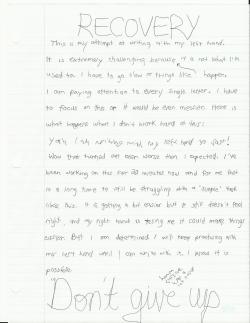 RECOVERY
This is my attempt at writing with my left hand.
It is extremely challenging because it is not what I'm
used to. I have to go slow or things like happen.
I am paying attention to every single letter. I have
to focus on this or it would be even messier. Here is
what happens when I don't work hard at this:
Yeah, I am writing with my left hand so fast!
Wow that turned out even worse than I expected. I've
been working on this for 20 minutes now and for me that
is a long time to still be struggling with a "simple" task
like this. It is getting a bit easier but it still doesn't feel
right, and my right hand is telling me it could make things
easier. But I am determined. I will keep practicing with
my left hand until I can write with it. I know it is
possible.
Don't give up